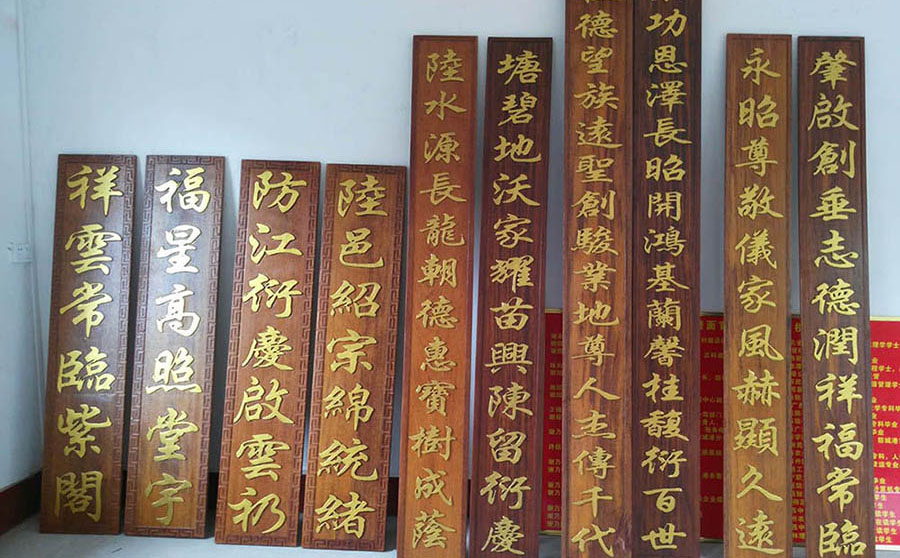 祥雲常臨紫閣
福星高照堂宇
防江衍慶啟雲礽
陸邑紹宗綿統緒
陸水源長龍朝德惠寶樹成蔭
塘碧地沃家耀苗興陳留衍慶
德望族遠聖創駿業地尊人杰傳千代
功恩澤長昭開鴻基蘭馨桂馥衍百世
永昭尊敬儀家風赫顯久遠
肇啟創垂志德潤祥福常臨